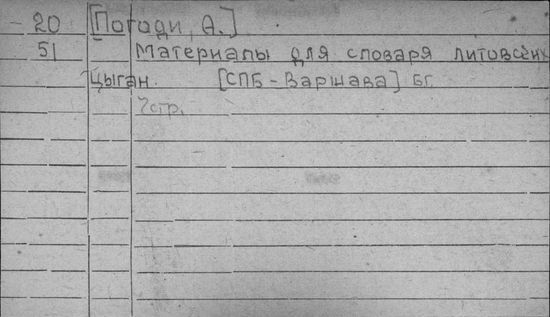 20 [Погоди, А.]
51 Материалы для словаря литовских
цыган. [СПБ-Варшава] бг.
7стр.